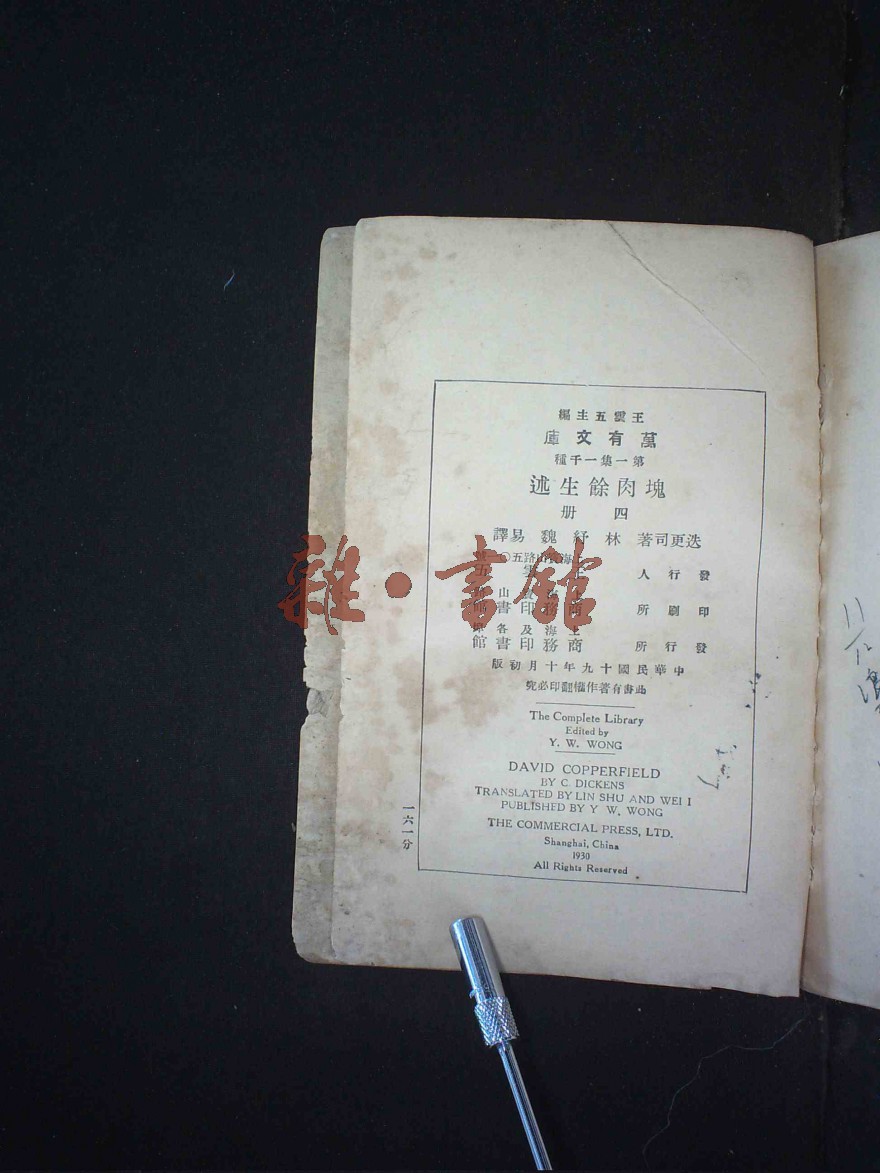 王雲五主編
萬有文庫
第一集一千種
塊肉餘生述
四册
迭更司著 林紓 魏易譯
發行人
印刷所 商務印書館
上海及各埠
發行所 商務印書館
中華民國十九年十月初版
此書有著作權翻印必究
The Complete Library
Edited by
Y. W. WONG
DAVID COPPERFIELD
BY C. DICKENS
TRANSLATED BY LIN SHU AND WEI I
PUBLISHED BY Y. W. WONG
THE COMMERCIAL PRESS, LTD.
Shanghai, China
1930
All Rights Reserved
一六一分
雜·書館